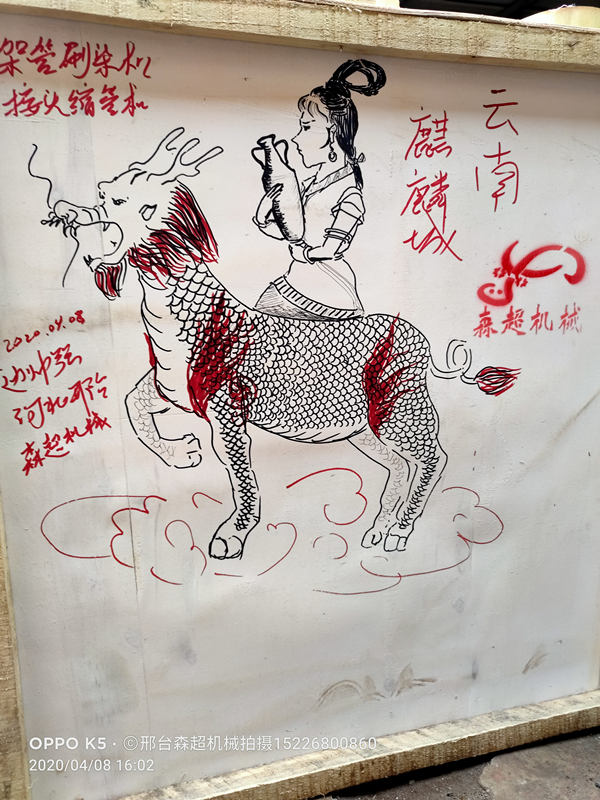 架管刷柒机
接头缩管机
云南
麒麟城
森超机械
2020.04.08
河北邢台
森超机械
OPPO K5 · ©邢台森超机械拍摄15226800860
2020/04/08 16:02